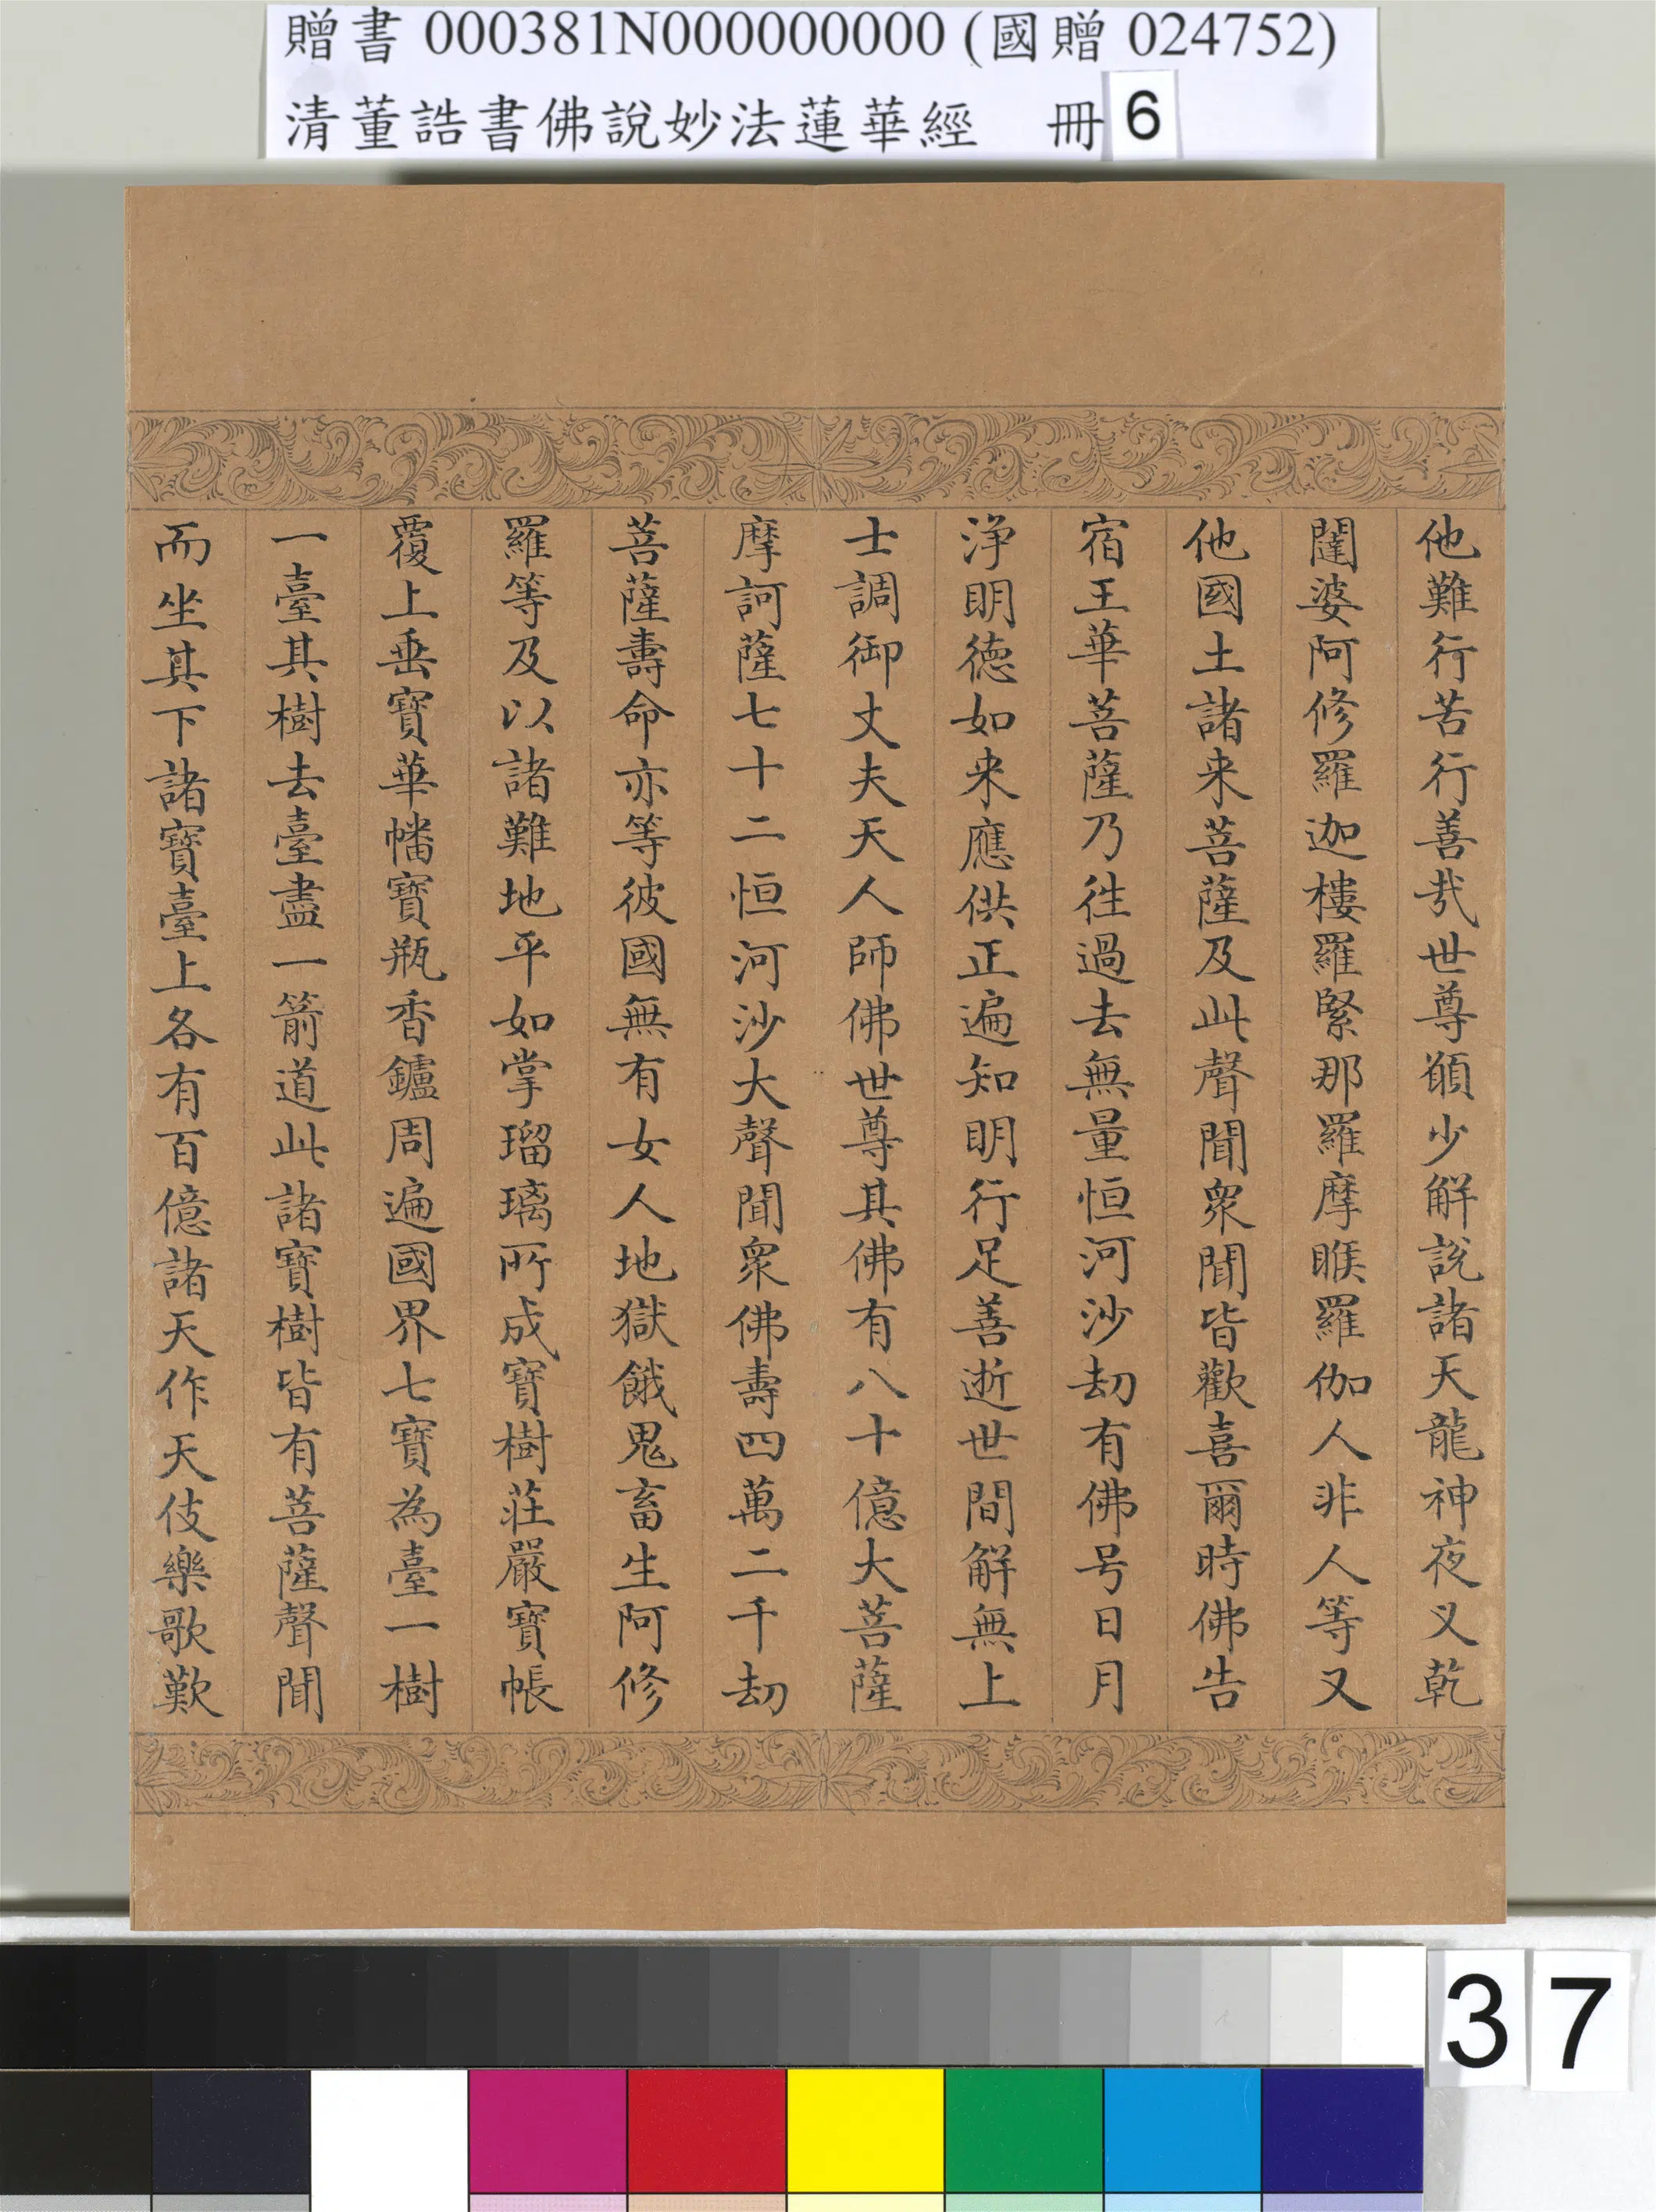 贈書 000381N000000000 (國贈 024752)
清董誥書佛說妙法蓮華經 冊 6
他難行苦行善哉世尊願少解說諸天龍神夜叉乾
闥婆阿修羅迦樓羅緊那羅摩睺羅伽人非人等又
他國土諸来菩薩及此聲聞衆聞皆歡喜爾時佛告
宿王華菩薩乃往過去無量恒河沙劫有佛号日月
淨明德如来應供正遍知明行足善逝世間解無上
士調御丈夫天人師佛世尊其佛有八十億大菩薩
摩訶薩七十二恒河沙大聲聞衆佛壽四萬二千劫
菩薩壽命亦等彼國無有女人地獄餓鬼畜生阿修
羅等及以諸難地平如掌瑠璃所成寶樹莊嚴寶帳
覆上垂寶華幡寶瓶香鑪周遍國界七寶為臺一樹
一臺其樹去臺盡一箭道此諸寶樹皆有菩薩聲聞
而坐其下諸寶臺上各有百億諸天作天伎樂歌歎
37